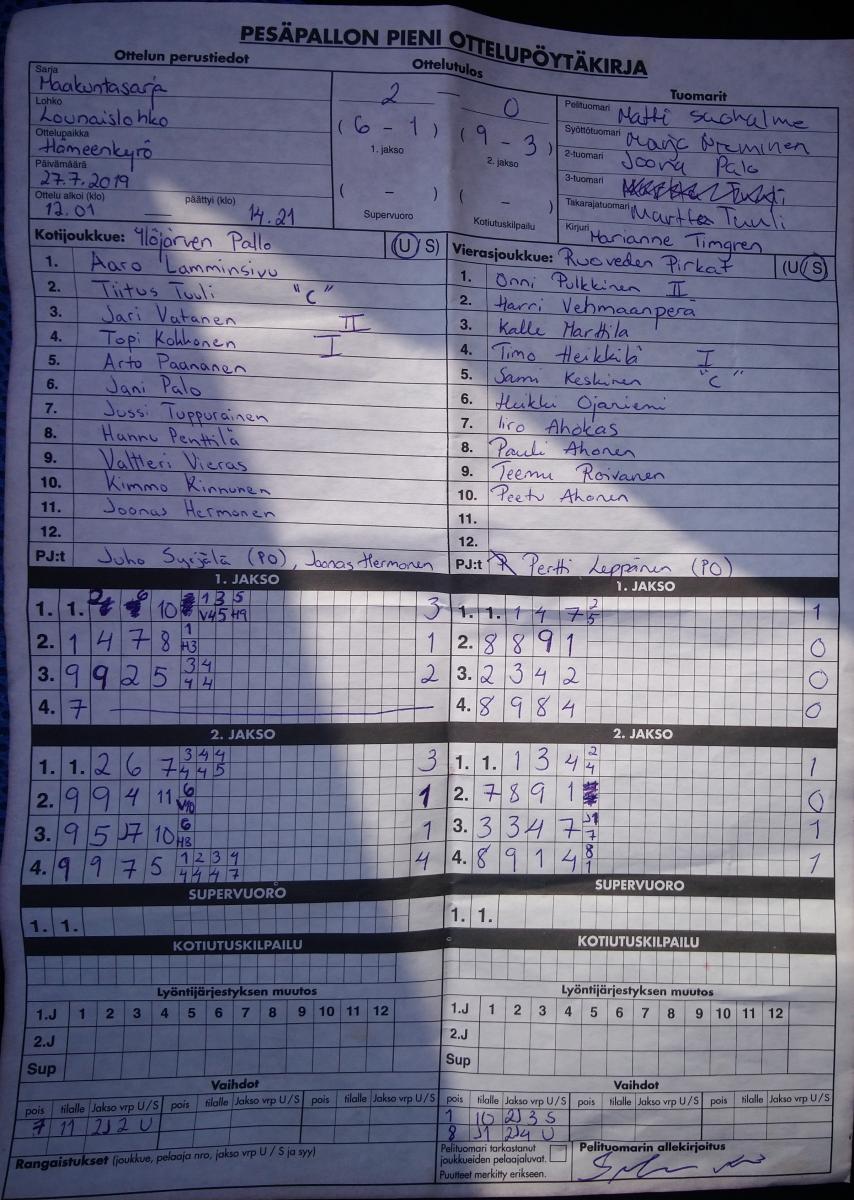 PESÄPALLON PIENI OTTELUPÖYTÄKIRJA
Ottelun perustiedot
Ottelutulos
Tuomarit
Sarja Maakuntasarja
Lohko Lounaislohko
Ottelupaikka Hämeenkyrö
Päivämäärä 27.7.2019
Ottelu alkoi (klo) 12.01 — päättyi (klo) 14.21
2 — 0
(6 - 1) (9 - 3)
1. jakso 2. jakso
( - ) ( - )
Supervuoro Kotiutuskilpailu
Pelituomari Matti Suohalme
Syöttötuomari Marjo
2-tuomari Joona Palo
3-tuomari
Takarajatuomari Martta Tuuli
Kirjuri Marianne Timgren
Kotijoukkue: Ylöjärven Pallo (U/S)
1. Aaro Lamminsivu
2. Tiitus Tuuli "C"
3. Jari Vatanen II
4. Topi Kokkonen I
5. Arto Paananen
6. Jani Palo
7. Jussi Tuppurainen
8. Hannu Penttilä
9. Valtteri Vieras
10. Kimmo Kinnunen
11. Joonas Hermonen
12.
PJ:t Juho Syrjälä (PO), Joonas Hermonen
Vierasjoukkue: Ruoveden Pirkat (U/S)
1. Onni Pulkkinen II
2. Harri Vehmaanperä
3. Kalle Marttila
4. Timo Heikkilä I
5. Sami Keskinen "C"
6. Heikki Ojaniemi
7. Iiro Ahokas
8. Pauli Ahonen
9. Teemu Roivanen
10. Peetu Ahonen
11.
12.
PJ:t Pertti Leppänen (PO)
1. JAKSO
1. 1. 2 6 10 1 3 5 V4 5 H9 3
2. 1 4 7 8 1 H3 1
3. 9 9 2 5 3 4 4 4 2
4. 7
2. JAKSO
1. 1. 2 6 7 3 4 4 4 4 5 3
2. 9 9 4 11 6 V10 1
3. 9 5 J7 10 6 H8 1
4. 9 9 7 5 1 2 3 4 4 4 4 7 4
SUPERVUORO
1. 1.
KOTIUTUSKILPAILU
1. JAKSO
1. 1. 1 4 7 2 5 1
2. 8 8 9 1 0
3. 2 3 4 2 0
4. 8 9 8 4 0
2. JAKSO
1. 1. 1 3 4 2 4 1
2. 7 8 9 1 0
3. 3 3 4 7 J1 7 1
4. 8 9 1 4 8 1 1
SUPERVUORO
1. 1.
KOTIUTUSKILPAILU
Lyöntijärjestyksen muutos
1.J 1 2 3 4 5 6 7 8 9 10 11 12
2.J
Sup
Vaihdot
pois tilalle Jakso vrp U/S pois tilalle Jakso vrp U/S pois tilalle Jakso vrp U/S
7 11 2J 2 U
Rangaistukset (joukkue, pelaaja nro, jakso vrp U / S ja syy)
Lyöntijärjestyksen muutos
1.J 1 2 3 4 5 6 7 8 9 10 11 12
2.J
Sup
Vaihdot
pois tilalle Jakso vrp U/S pois tilalle Jakso vrp U/S pois tilalle Jakso vrp U/S
1 10 2J 3 S
8 J1 2J 4 U
Pelituomari tarkastanut joukkueiden pelaajaluvat.
Puutteet merkitty erikseen.
Pelituomarin allekirjoitus